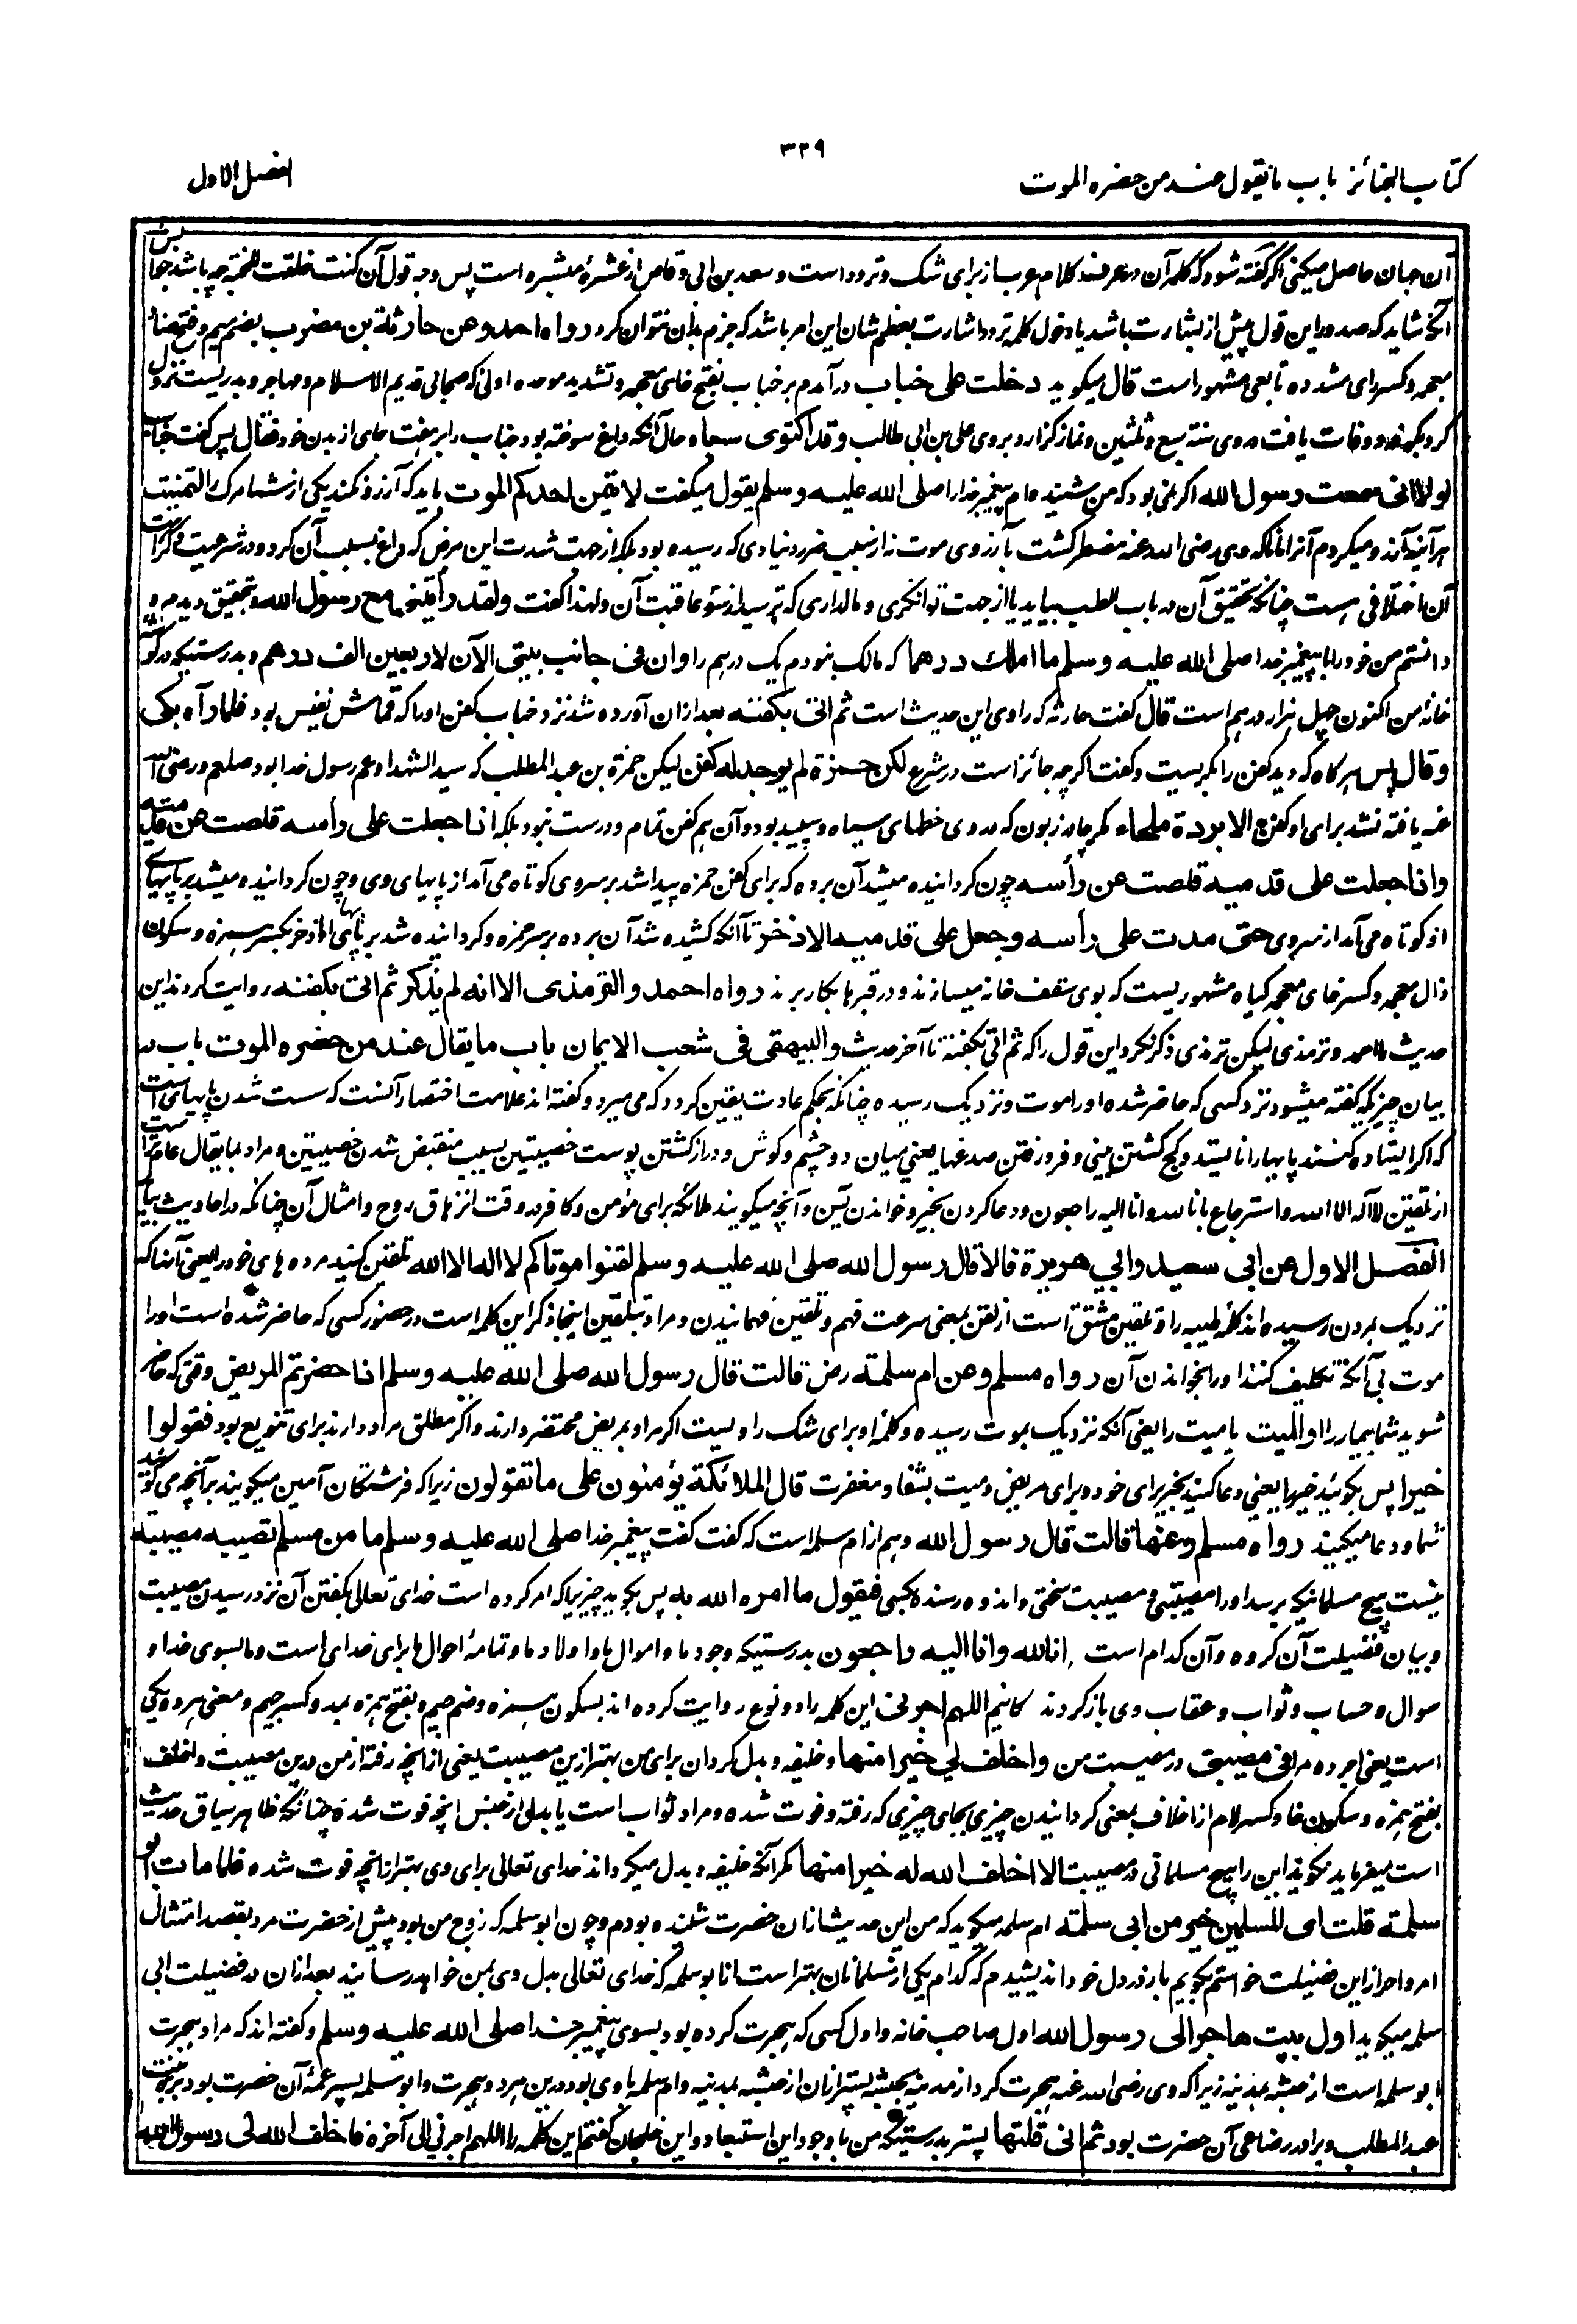 ۳۲۹
کتاب الجنائز باب ما یقول عند من حضره الموت
الفصل الاول
آن جهان حاصل میکنی اگر گفته شود که کلمه آن در عرف کلام عرب از برای شک و تردد است و سعد بن ابی وقاص از عشرهٔ مبشره است پس وجه قول آن کنت خلقت للجنة چه باشد جوابش
آنکه شاید که صدور این قول پیش از بشارت باشد یا دخول کلمه تردد اشارت بعظم شان این امر باشد که جزم بدان نتوان کرد رواه احمد وعن حارثة بن مضرب بضم میم وفتح ضاد
معجمه وکسر رای مشدده تابعی مشهور است قال میگوید دخلت علی خباب درآمدم بر خباب بفتح خای معجمه وتشدید موحده اولی که صحابی قدیم الاسلام ومهاجر وبدریست نزول
کرد بکوفه ووفات یافت در وی سنة سبع وثلثین ونماز گزارد بر وی علی بن ابی طالب وقد اکتوی سبعا وحال آنکه داغ سوخته بود خباب را بر هفت جای از بدن خود فقال پس گفت خباب
لولا انی سمعت رسول الله اگر نمی بود که من شنیده ام پیغمبر خدا را صلی الله علیه وسلم یقول میگفت لا یتمن احدکم الموت باید که آرزو نکند یکی از شما مرگ را لتمنیته
هر آینه آرزو میکردم آنرا مانا که وی رضی الله عنه مضطر گشت بآرزوی موت نه از سبب ضرر دنیاوی که رسیده بود بلکه از جهت شدت این مرض که داغ بسبب آن کرد ودر شرعیت کراهت
آن اختلافی هست چنانکه تحقیق آن در باب الطب بیاید یا از جهت توانگری ومالداری که ترسید از سوء عاقبت آن ولهذا گفت ولقد رأیتنی مع رسول الله وبتحقیق دیدم و
دانستم من خود را با پیغمبر خدا صلی الله علیه وسلم ما املک درهما که مالک نبودم یک درهم را وان فی جانب بیتی الآن لاربعین الف درهم وبدرستیکه در گوشه
خانهٔ من اکنون چهل هزار درهم است قال گفت حارثه که راوی این حدیث است ثم اتی بکفنه بعد ازان آورده شد نزد خباب کفن او را که قماش نفیس بود فلما رآه بکی
وقال پس هرگاه که دید کفن را بگریست وگفت اگرچه جائز است در شرع لکن حمزة لم یوجد له کفن لیکن حمزة بن عبد المطلب که سید الشهدا وعم رسول خدا بود صلعم ورضی الله
عنه یافته نشد برای او کفن الا بردة ملحاء مگر چادر زبون که در وی خطهای سیاه وسپید بود وآن هم کفن تمام ودرست نبود بلکه اذا جعلت علی رأسه قلصت عن قدمیه
واذا جعلت علی قدمیه قلصت عن رأسه چون گردانیده میشد آن برده که برای کفن حمزه پیدا شد بر سر وی کوتاه می آمد از پایهای وی وچون گردانیده میشد بر پایهای
او کوتاه می آمد از سر وی حتی مدت علی رأسه وجعل علی قدمیه الاذخر تا آنکه کشیده شد آن برده بر سر حمزه وگردانیده شد بر پایهای او اذخر بکسر همزه وسکون
ذال معجمه وکسر خای معجمه گیاه مشهور یست که بوی سقف خانه میسازند ودر قبرها بکار برند رواه احمد والترمذی الا انه لم یذکر ثم اتی بکفنه روایت کردند این
حدیث را احمد وترمذی لیکن ترمذی ذکر نکرد این قول را که ثم اتی بکفنه تا آخر حدیث والبیهقی فی شعب الایمان باب ما یقال عند من حضره الموت باب در
بیان چیزیکه گفته میشود نزد کسی که حاضر شده او را موت ونزدیک رسیده چنانکه بحکم عادت یقین گردد که می میرد وگفته اند علامت احتضار آنست که سست شدن پایهای است
که اگر ایستاده کنند پایها را نایستد وکج گشتن بینی وفرو رفتن صدغها یعنی میان دو چشم وگوش ودراز گشتن پوست خصیتین بسبب منقبض شدن خصیتین ومراد بما یقال عام تر است
از تلقین لا اله الا الله واسترجاع بانا لله وانا الیه راجعون ودعا کردن بخیر وخواندن یس وآنچه میگویند ملائکه برای مؤمن وکافر در وقت انزهاق روح وامثال آن چنانکه در احادیث بیاید
الفصل الاول عن ابی سعید وابی هریرة قالا قال رسول الله صلی الله علیه وسلم لقنوا موتاکم لا اله الا الله تلقین کنید مرده های خود را یعنی آنانکه
نزدیک بمردن رسیده اند کلمه طیبه را وتلقین مشتق است از لقن بمعنی سرعت فهم وتلقین فهمانیدن ومراد بتلقین اینجا ذکر این کلمه است در حضور کسی که حاضر شده است او را
موت بی آنکه تکلیف کنند او را بخواندن آن رواه مسلم وعن ام سلمته رض قالت قال رسول الله صلی الله علیه وسلم اذا حضرتم المریض وقتی که حاضر
شوید شما بیمار را او المیت یا میت را یعنی آنکه نزدیک بموت رسیده وکلمهٔ او برای شک راویست اگر مراد بمریض محتضر دارند واگر مطلق مراد دارند برای تنویع بود فقولوا
خیرا پس بگوئید خیر را یعنی دعا کنید بخیر برای خود وبرای مریض ومیت بشفا ومغفرت قال الملائکة یؤمنون علی ما تقولون زیرا که فرشتگان آمین میگویند بر آنچه می گوئید
شما ودعا میکنید رواه مسلم وعنها قالت قال رسول الله وهم از ام سلمه است که گفت گفت پیغمبر خدا صلی الله علیه وسلم ما من مسلم تصیبه مصیبته
نیست هیچ مسلمانیکه برسد او را مصیبتی ومصیبت سختی واندوه رسنده بکسی فیقول ما امره الله به پس بگوید چیزیرا که امر کرده است خدای تعالی بگفتن آن نزد رسیدن مصیبت
وبیان فضیلت آن کرده وآن کدام است انا لله وانا الیه راجعون بدرستیکه وجود ما واموال ما واولاد ما وتمامهٔ احوال ما برای خدای است وما بسوی خدا و
سوال وحساب وثواب وعقاب وی بازگردند کانیم اللهم اجرنی این کلمه را دو نوع روایت کرده اند بسکون همزه وضم جیم وبفتح همزه بمد وکسر جیم ومعنی هر دو یکی
است یعنی اجر ده مرا فی مصیبتی در مصیبت من واخلف لی خیرا منها وخلیفه وبدل گردان برای من بهتر ازین مصیبت یعنی از آنچه رفته از من درین مصیبت واخلف
بفتح همزه وسکون خا وکسر لام از اخلاف بمعنی گردانیدن چیزی بجای چیزی که رفته وفوت شده ومراد ثواب است یا بدلی از جنس آنچه فوت شده چنانکه ظاهر سیاق حدیث
است میفرماید نگوید این را هیچ مسلمانی در مصیبت الا اخلف الله له خیرا منها مگر آنکه خلیفه وبدل میگرداند خدای تعالی برای وی بهتر از آنچه فوت شده فلما مات ابو
سلمته قلت ای المسلمین خیر من ابی سلمته ام سلمه میگوید که من این حدیث از ان حضرت شنیده بودم وچون ابو سلمه که زوج من بود پیش از حضرت مرد بقصد امتثال
امر واحراز این فضیلت خواستم بگویم باز در دل خود اندیشیدم که کدام یکی از مسلمانان بهتر است از ابو سلمه که خدای تعالی بدل وی بمن خواهد رسانید بعد ازان در فضیلت ابی
سلمه میگوید اول بیت هاجر الی رسول الله اول صاحب خانه واول کسی که هجرت کرده بود بسوی پیغمبر خدا صلی الله علیه وسلم وگفته اند که مراد هجرت
ابو سلمه است از حبشه بمدینه زیرا که وی رضی الله عنه هجرت کرد از مدینه بحبشه پستر ازان از حبشه بمدینه وام سلمه با وی بود درین هر دو هجرت وابو سلمه پسر عمهٔ آن حضرت بود برّه بنت
عبد المطلب وبرادر رضاعی آن حضرت بود ثم انی قلتها پستر بدرستیکه من با وجود این استبعاد واین خلجان گفتم این کلمه را اللهم اجرنی الی آخره فاخلف الله لی رسول الله